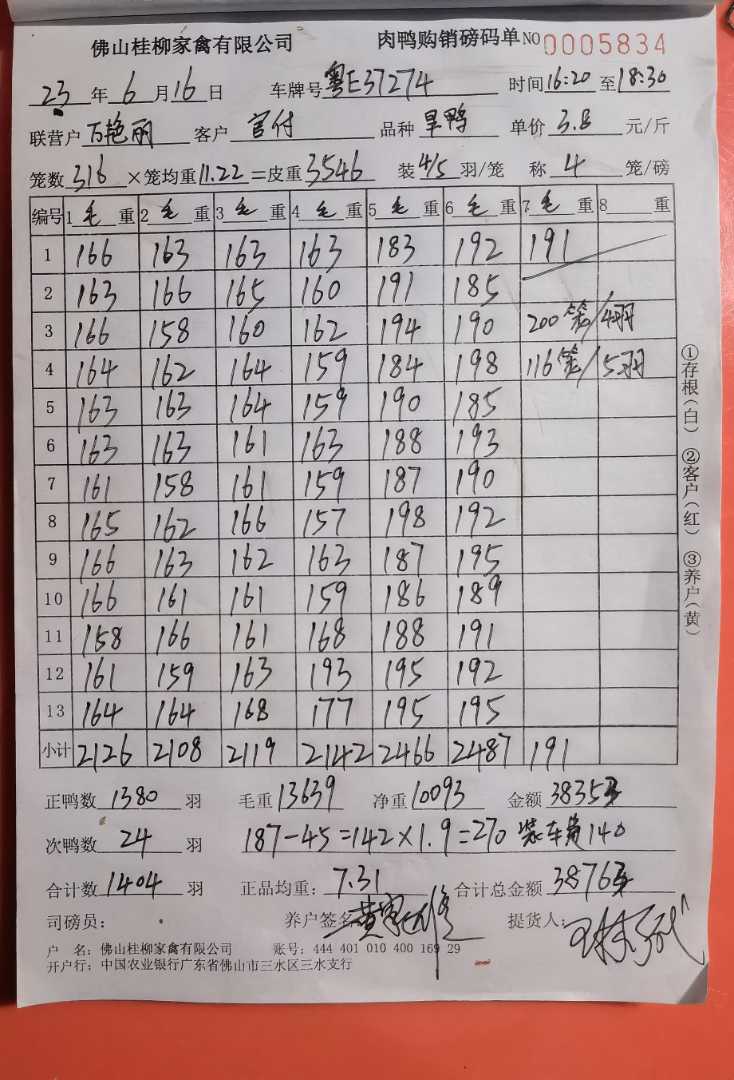 佛山桂柳家禽有限公司 肉鸭购销磅码单 NO 0005834
23 年 6 月 16 日 车牌号 粤E37274 时间 16:20 至 18:30
联营户 客户 官付 品种 旱鸭 单价 3.8 元/斤
笼数 316 ×笼均重 11.22 =皮重 3546 装 4/5 羽/笼 称 4 笼/磅
编号 1 毛 重 2 毛 重 3 毛 重 4 毛 重 5 毛 重 6 毛 重 7 毛 重 8 重
1 166 163 163 163 183 192 191
2 163 166 165 160 191 185
3 166 158 160 162 194 190 200笼/4羽
4 164 162 164 159 184 198 116笼/5羽
5 163 163 164 159 190 185
6 163 163 161 163 188 193
7 161 158 161 159 187 190
8 165 162 166 157 198 192
9 166 163 162 163 187 195
10 166 161 161 159 186 189
11 158 166 161 168 188 191
12 161 159 163 193 195 192
13 164 164 168 177 195 195
小计 2126 2108 2119 2142 2466 2487 191
正鸭数 1380 羽 毛重 13639 净重 10093 金额
次鸭数 24 羽 187-45=142×1.9=270 装车费140
合计数 1404 羽 正品均重: 7.31 合计总金额
司磅员: 养户签名 提货人:
户 名: 佛山桂柳家禽有限公司 账号: 444 401 010 400 169 29
开户行: 中国农业银行广东省佛山市三水区三水支行
①存根(白) ②客户(红) ③养户(黄)